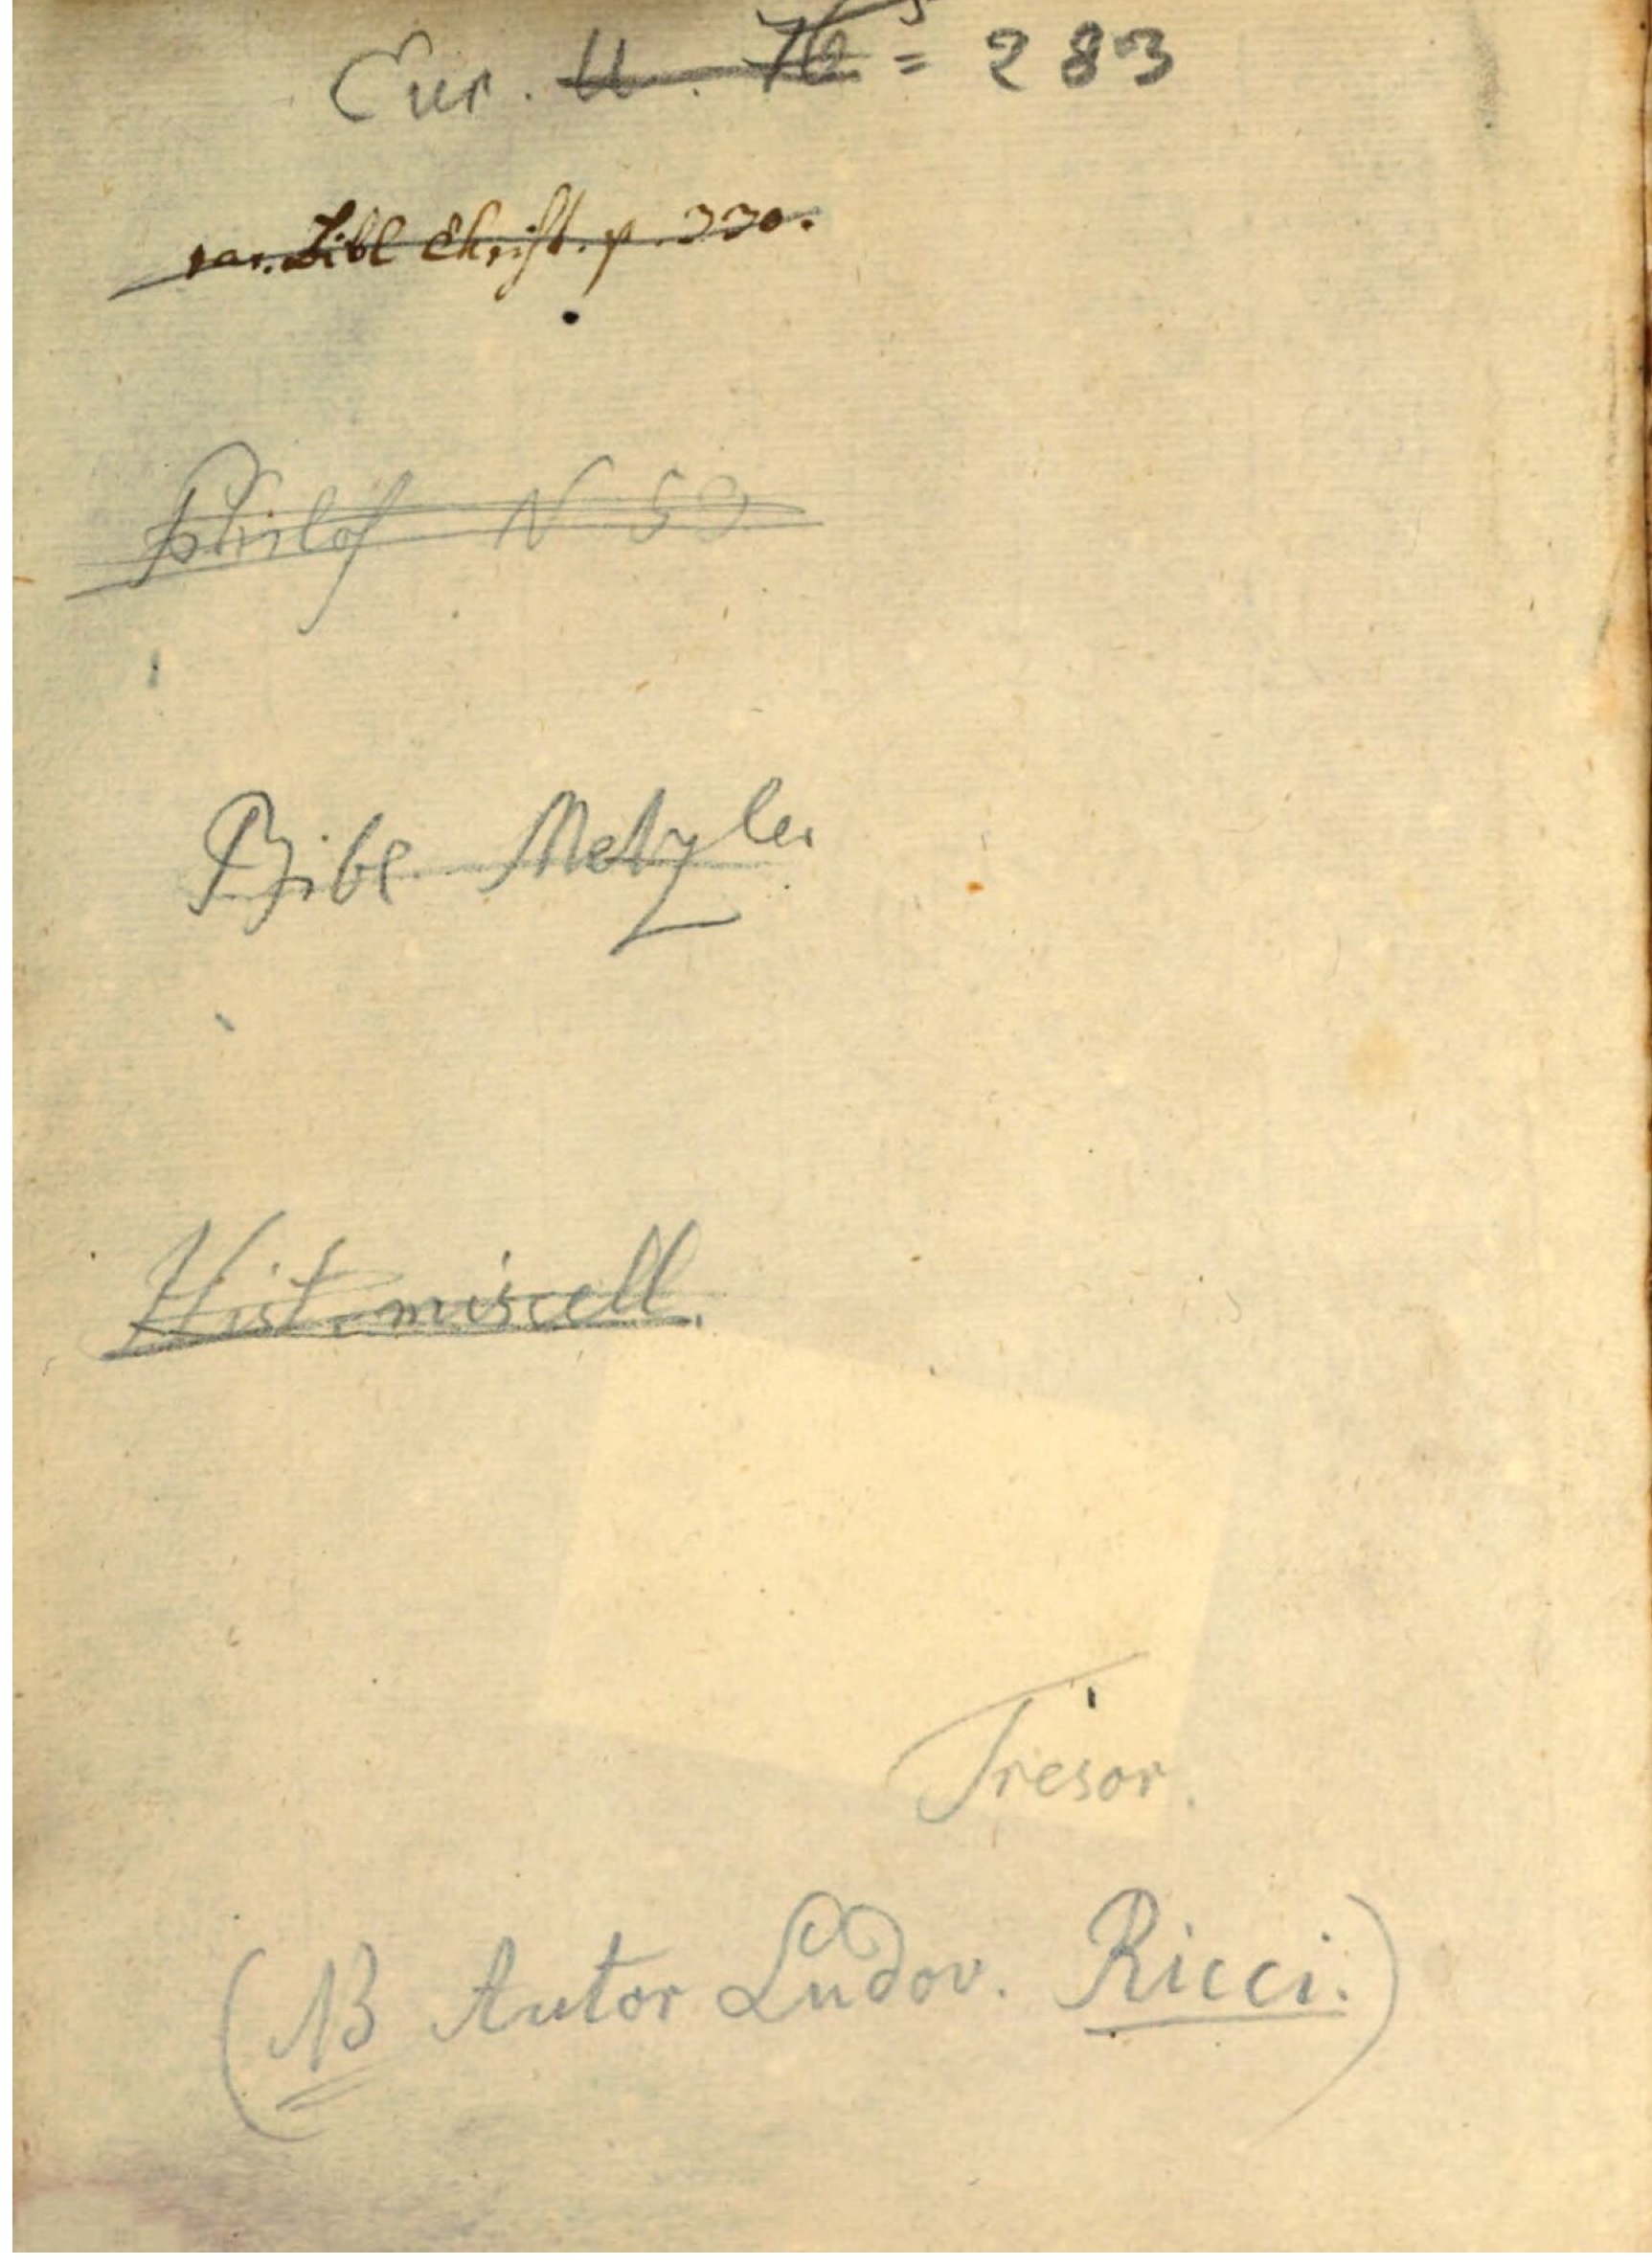 Cur. U. 76 5 = 283
rar. Bibl Christ. p. 330.
Philos N 59
Bibl Metzler
Hist. miscell.
Tresor.
(NB Autor Ludov. Ricci.)